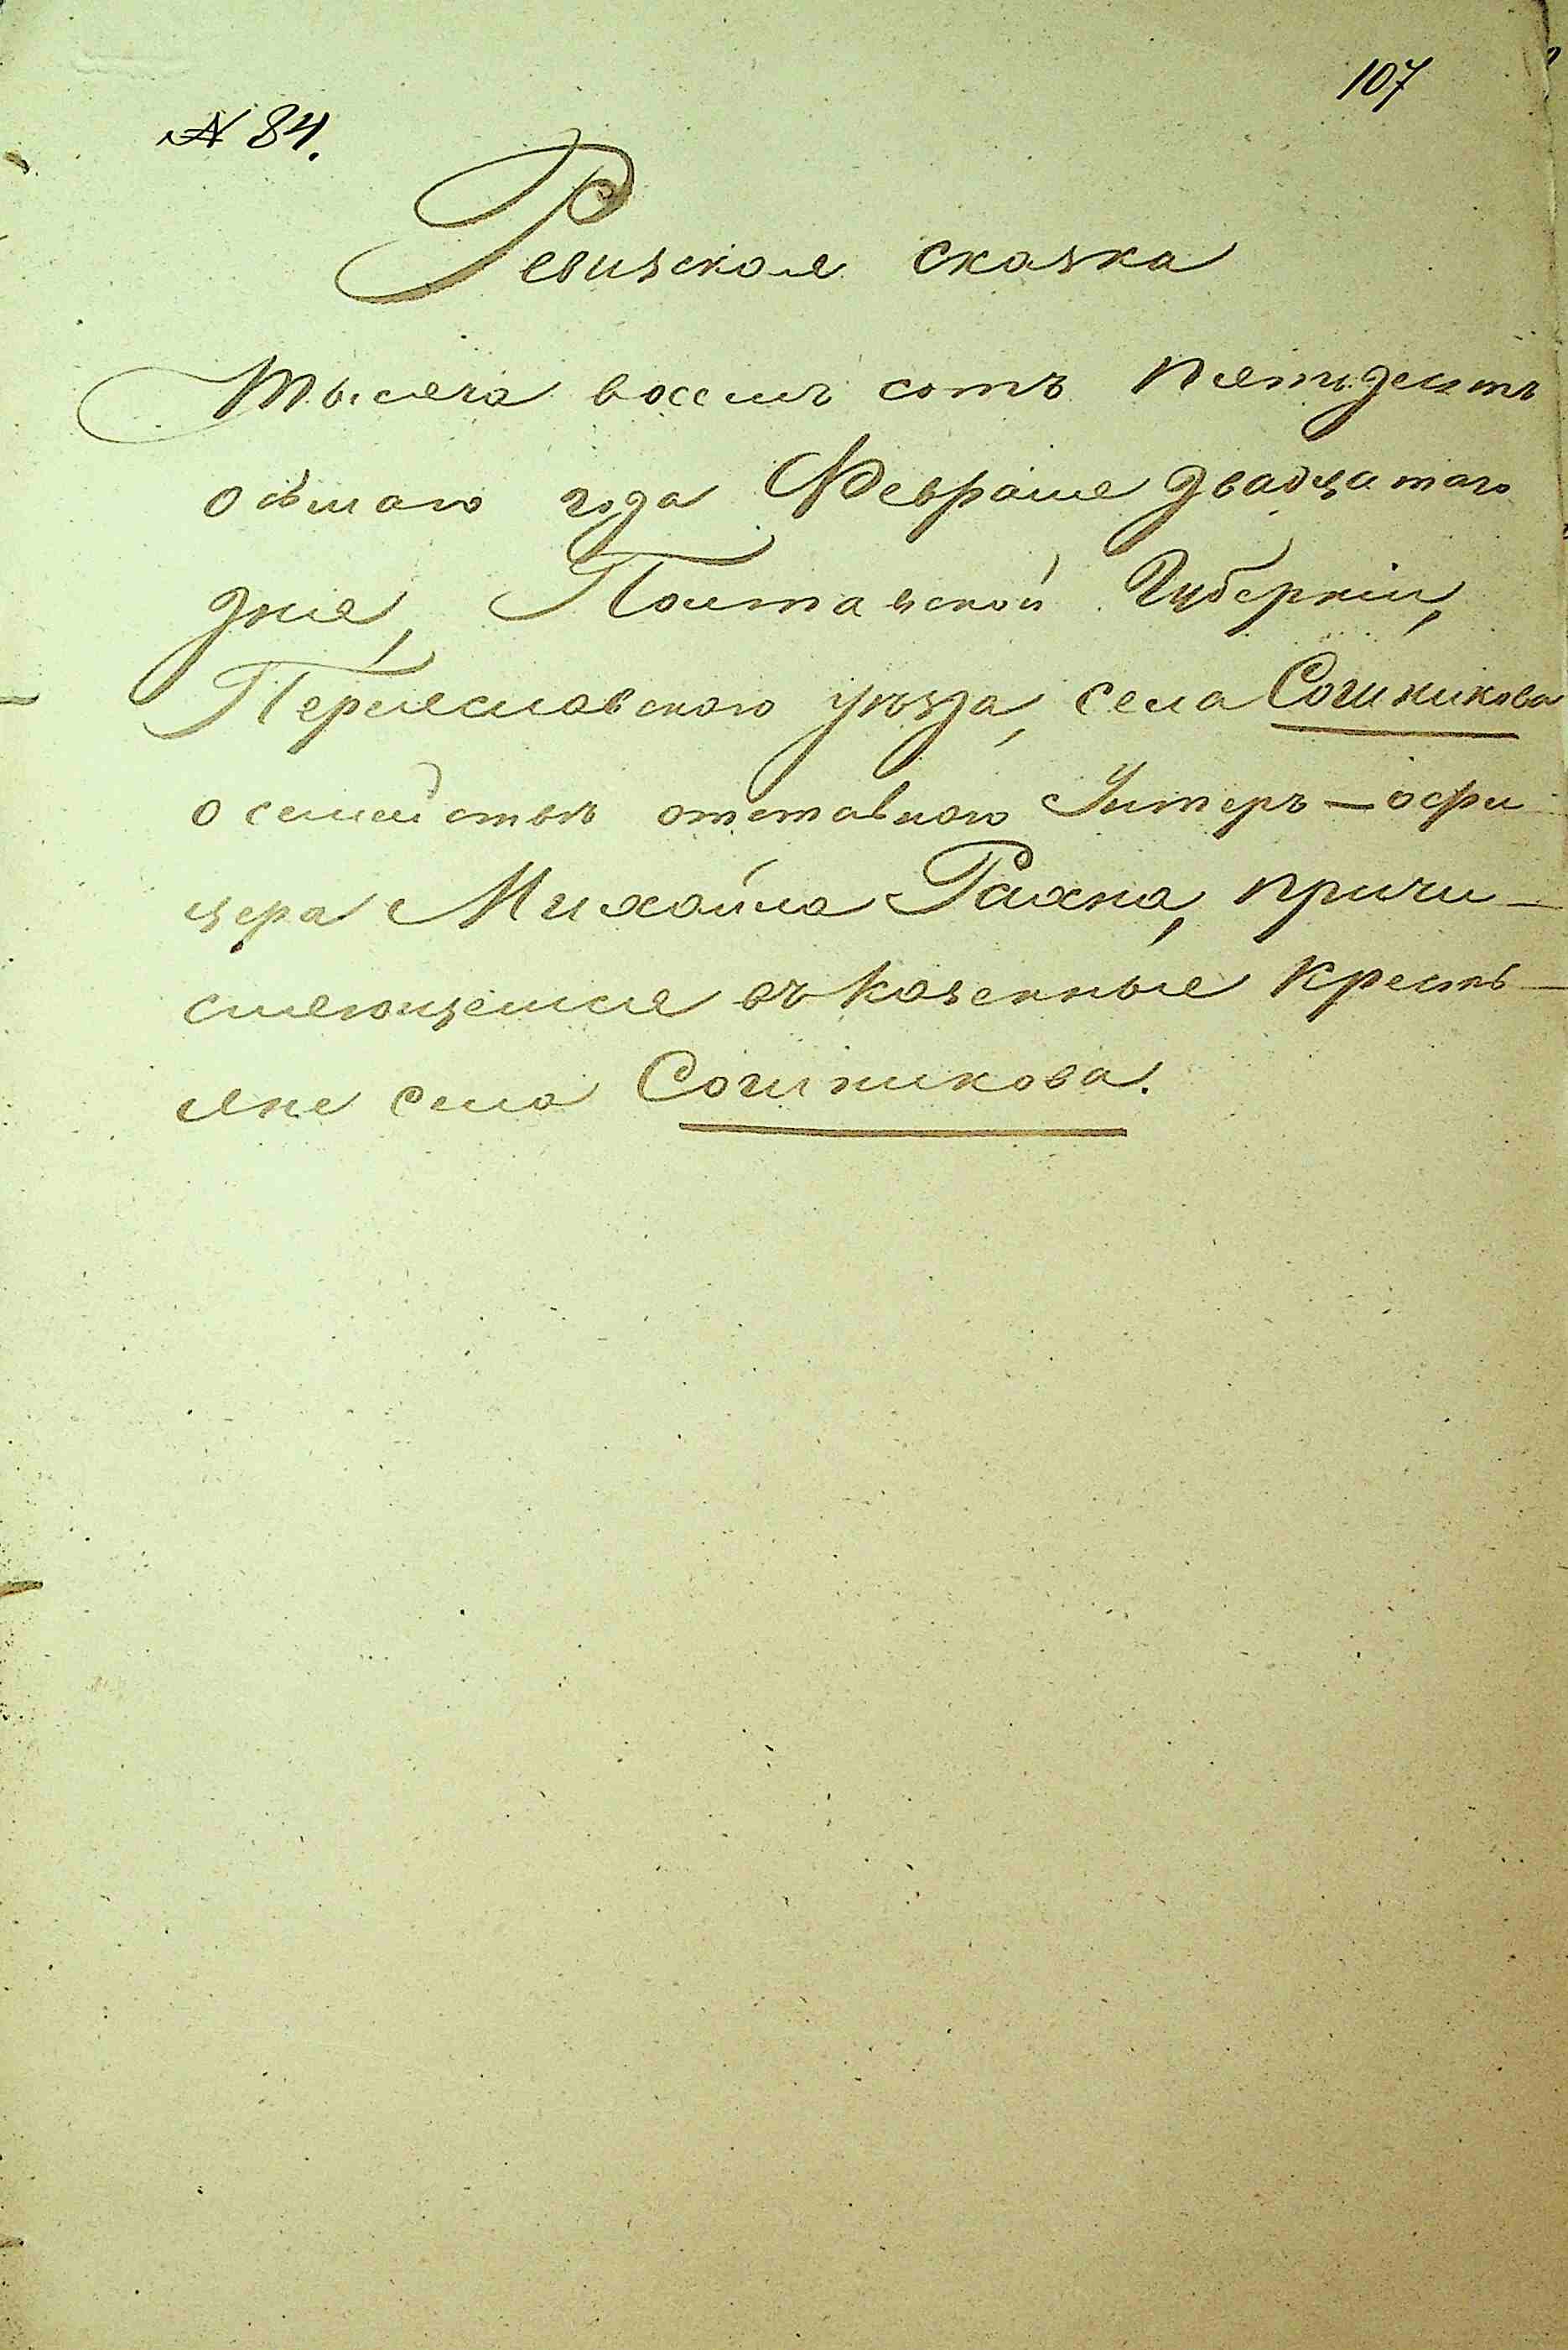 107
№ 84.
Ревизская сказка
Тысяча восемъ сотъ пятьдесятъ
осьмаго года Февраля двадцатаго
дня, Полтавской Губерніи,
Переяславского уѣзда, села Сошникова
о семействѣ отставного Унтеръ-офи
цера Михайла Рахна, причи-
сляющемся въ казенные кресть-
яне села Сошникова.